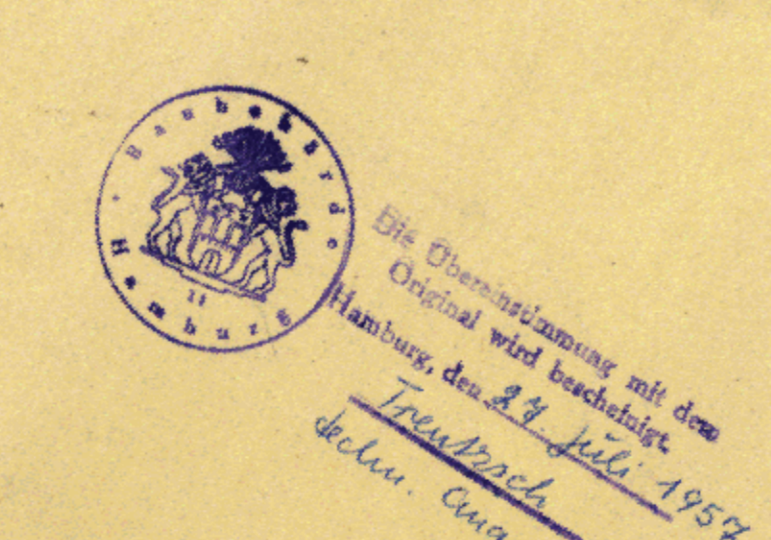 Baubehörde
Hamburg
11
Die Übereinstimmung mit dem
Original wird bescheinigt.
Hamburg, den 27. Juli 1957
Treutzsch
techn. Ang